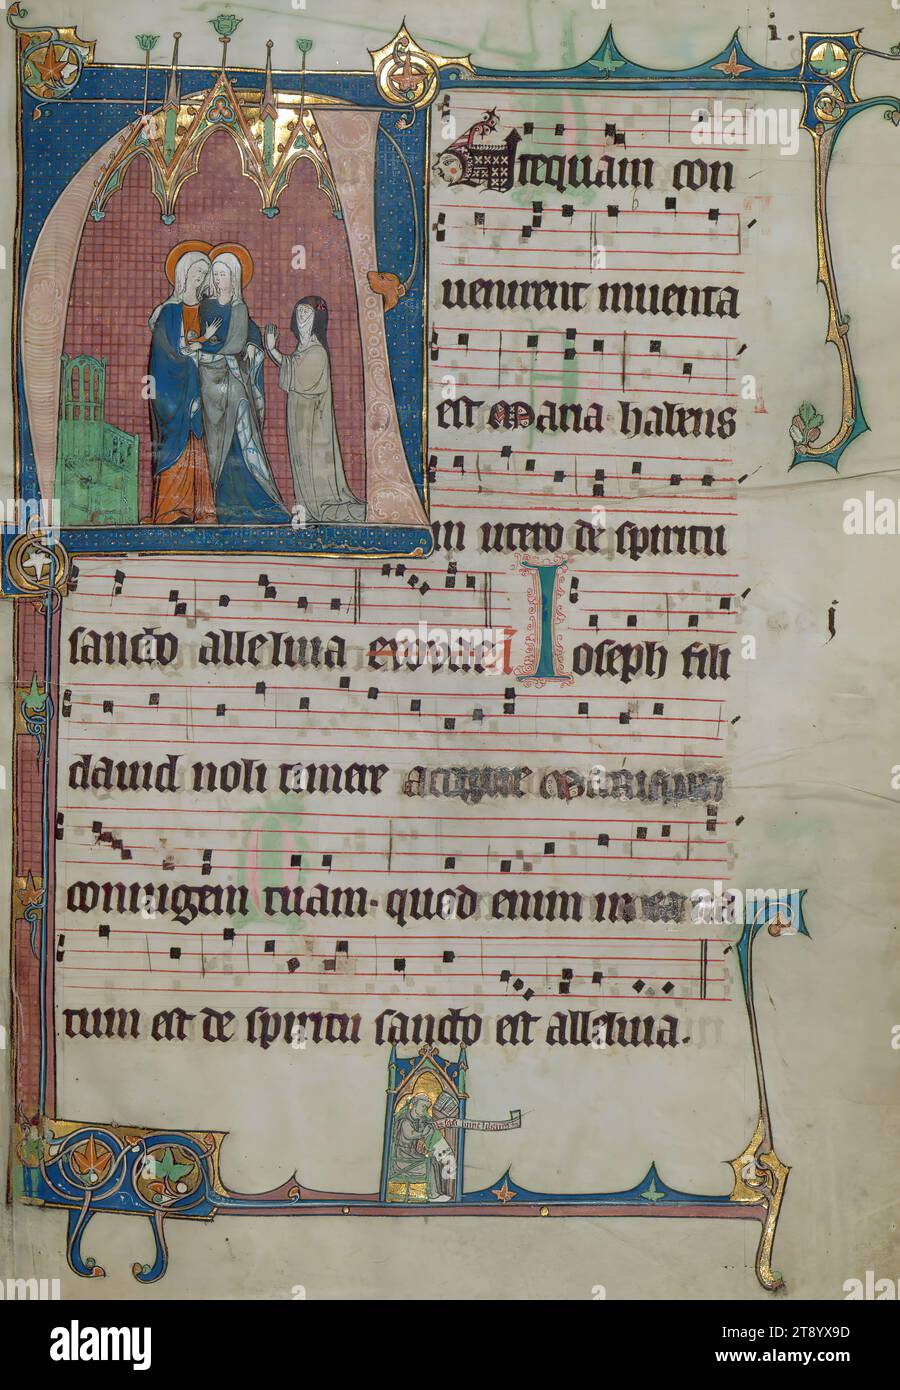 i.
Antequam con
uenirent inuenta
est Maria habens
in utero de spiritu
j
sancto alleluia evovae A Ioseph fili
dauid noli timere accipere Mariam
coniugem tuam. quod enim in ea na
tum est de spiritu sancto est alleluia.
alamy
Image ID: 2T8YX9D
www.alamy.com